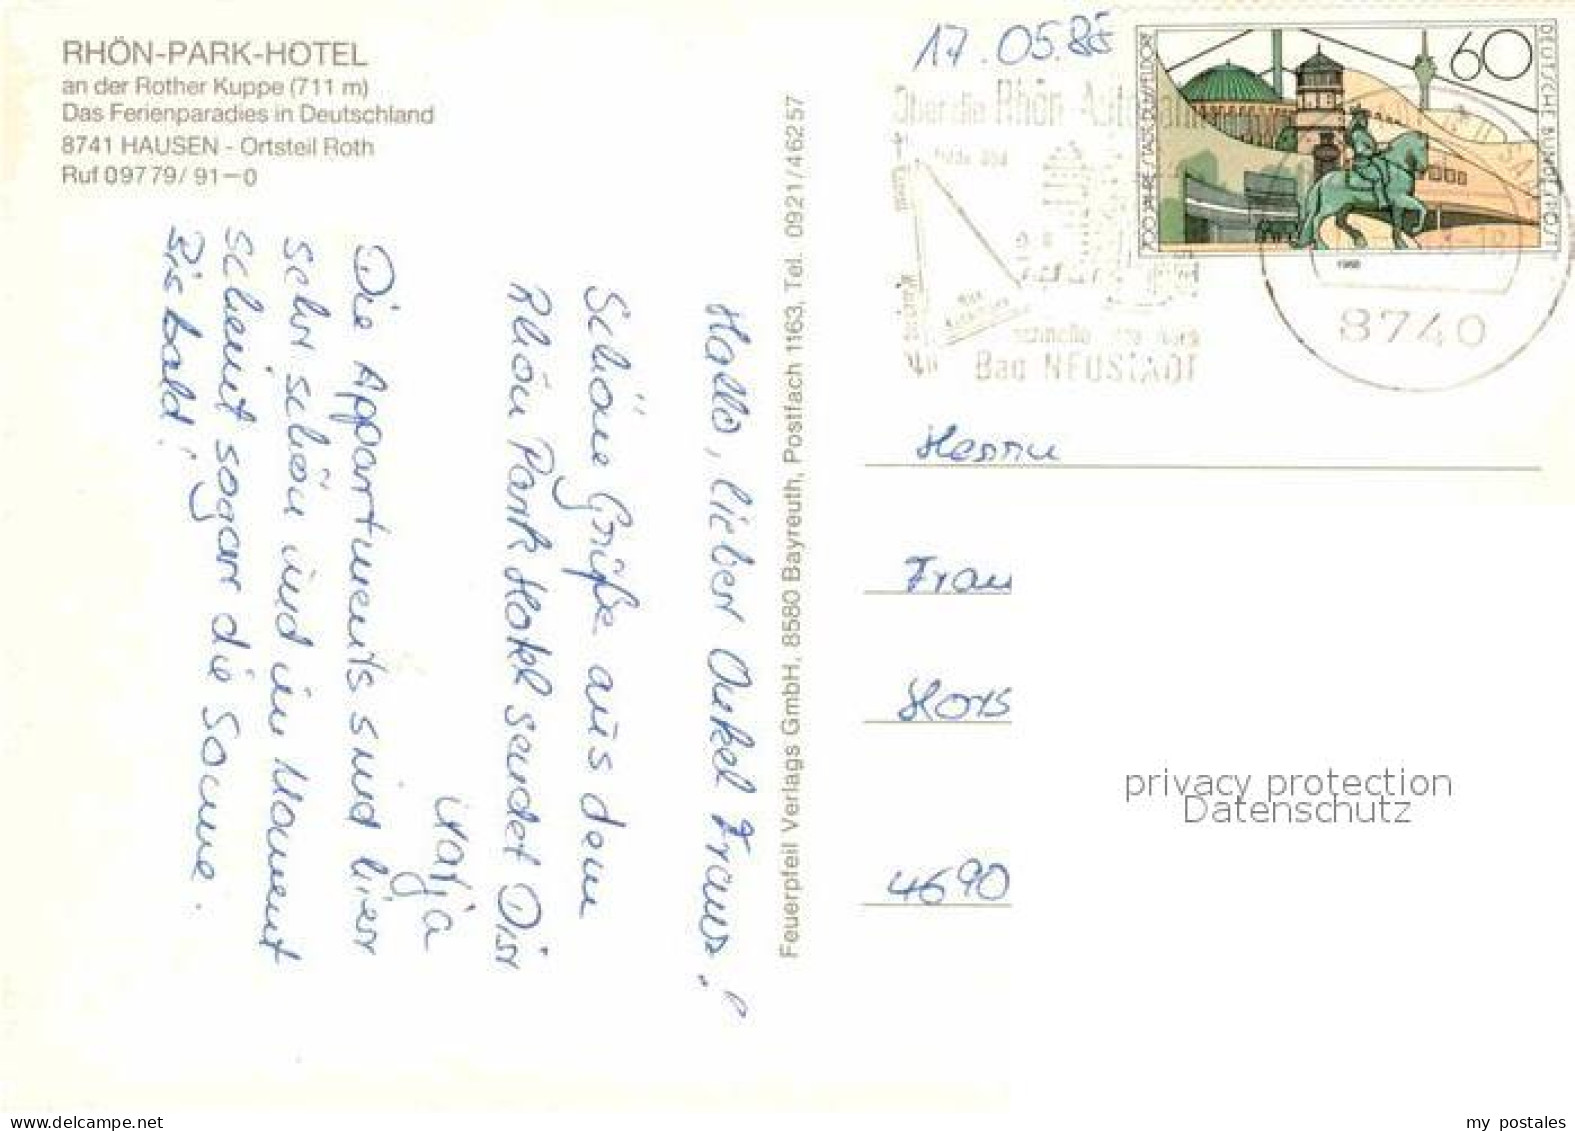 RHÖN-PARK-HOTEL
an der Rother Kuppe (711 m)
Das Ferienparadies in Deutschland
8741 HAUSEN - Ortsteil Roth
Ruf 09779/91-0
Hallo, lieber Onkel Franz!
Schöne Grüße aus dem
Rhön Park Hotel sendet Dir
Katja
Die Appartments sind hier
sehr schön und im Moment
scheint sogar die Sonne.
Bis bald!
Feuerpfeil Verlags GmbH, 8580 Bayreuth, Postfach 1163, Tel. 0921/46257
17.05.88
Über die Rhön-Autobahn
schnelle
Bad NEUSTADT
60
DEUTSCHE BUNDESPOST
700 JAHRE STADT DÜSSELDORF
1988
8740
Herrn
Fran
Hors
4690
privacy protection
Datenschutz
www.delcampe.net
my_postales